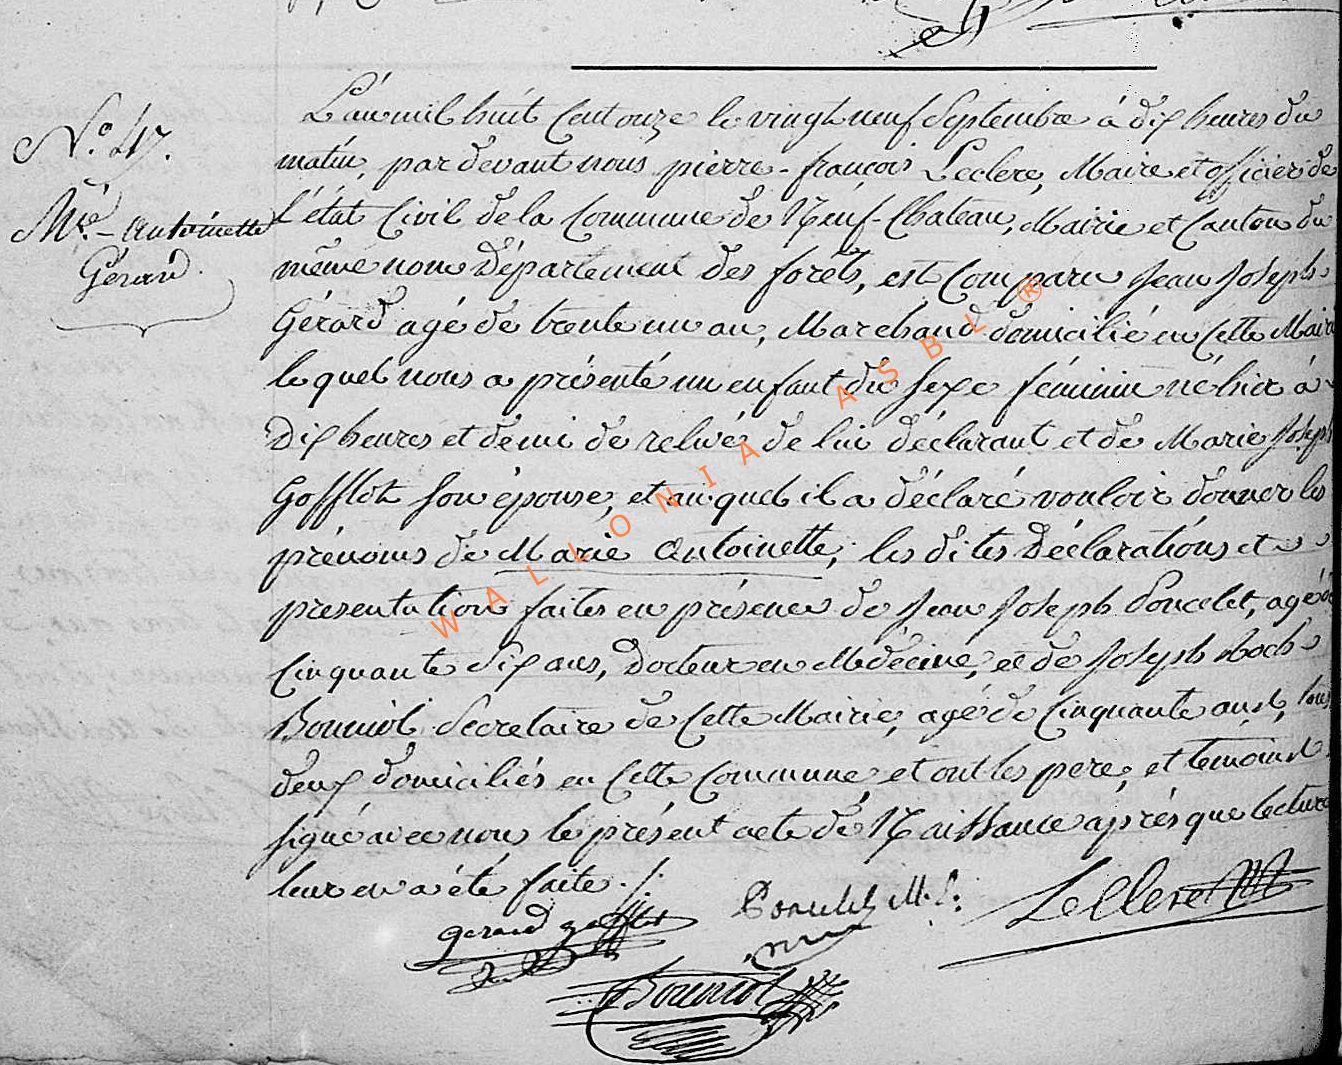 N.o 47.
M.ie - Antoinette
Gérard.
L'an mil huit Cent onze le vingt neuf Septembre à dix heures du
matin, par devant nous pierre-françois Leclerc, Maire et officier de
l'état Civil de la Commune de Neuf-Chateau, Mairie et Canton du
même nom Département des forêts, est Comparu Jean Joseph
Gérard agé de trente un an, Marchand domicilié en Cette Mairie
lequel nous a présenté un enfant du Sexe féminin né hier à
Dix heures et demi de relevée de lui déclarant et de Marie Joseph
Gofflot son épouse, et auquel il a déclaré vouloir donner les
prénoms de Marie Antoinette, les dites Déclarations et
presentation faites en présence de Jean Joseph Poncelet, agé de
Cinquante Six ans, Docteur en Médécine, et de Joseph Roch
Bouniol Secretaire de Cette Mairie, agé de Cinquante ans, tous
deux domiciliés en Cette Commune, et ont les pere, et témoins
signé avec nous le présent acte de Naissance après que lecture
leur en a été faite ./.
gerard gofflot
Poncelet M. D.
Leclerc
Bouniol
WALLONIA ASBL ®